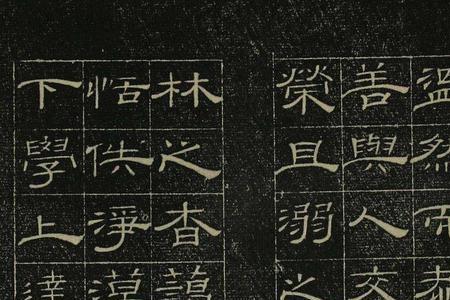 溫然而
善與人交
榮且溺之
林之杳藹
恬佚淨漠
下學上達